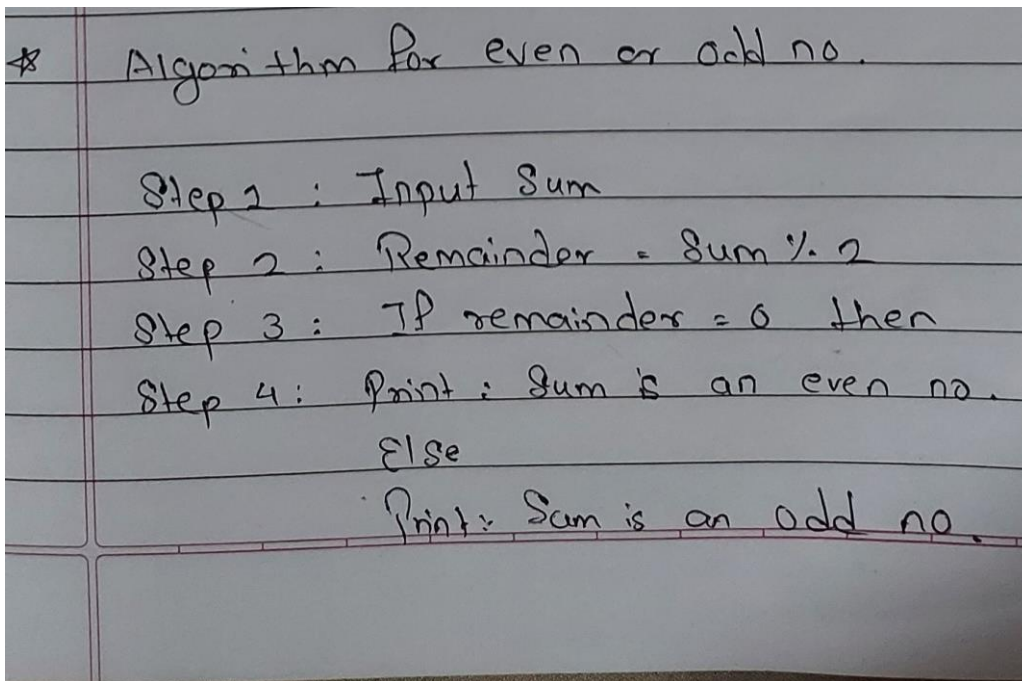 ☆ Algorithm for even or odd no.
Step 1 : Input Sum
Step 2 : Remainder = Sum % 2
Step 3 : If remainder = 0 then
Step 4 : Print : Sum is an even no.
Else
Print : Sum is an odd no.